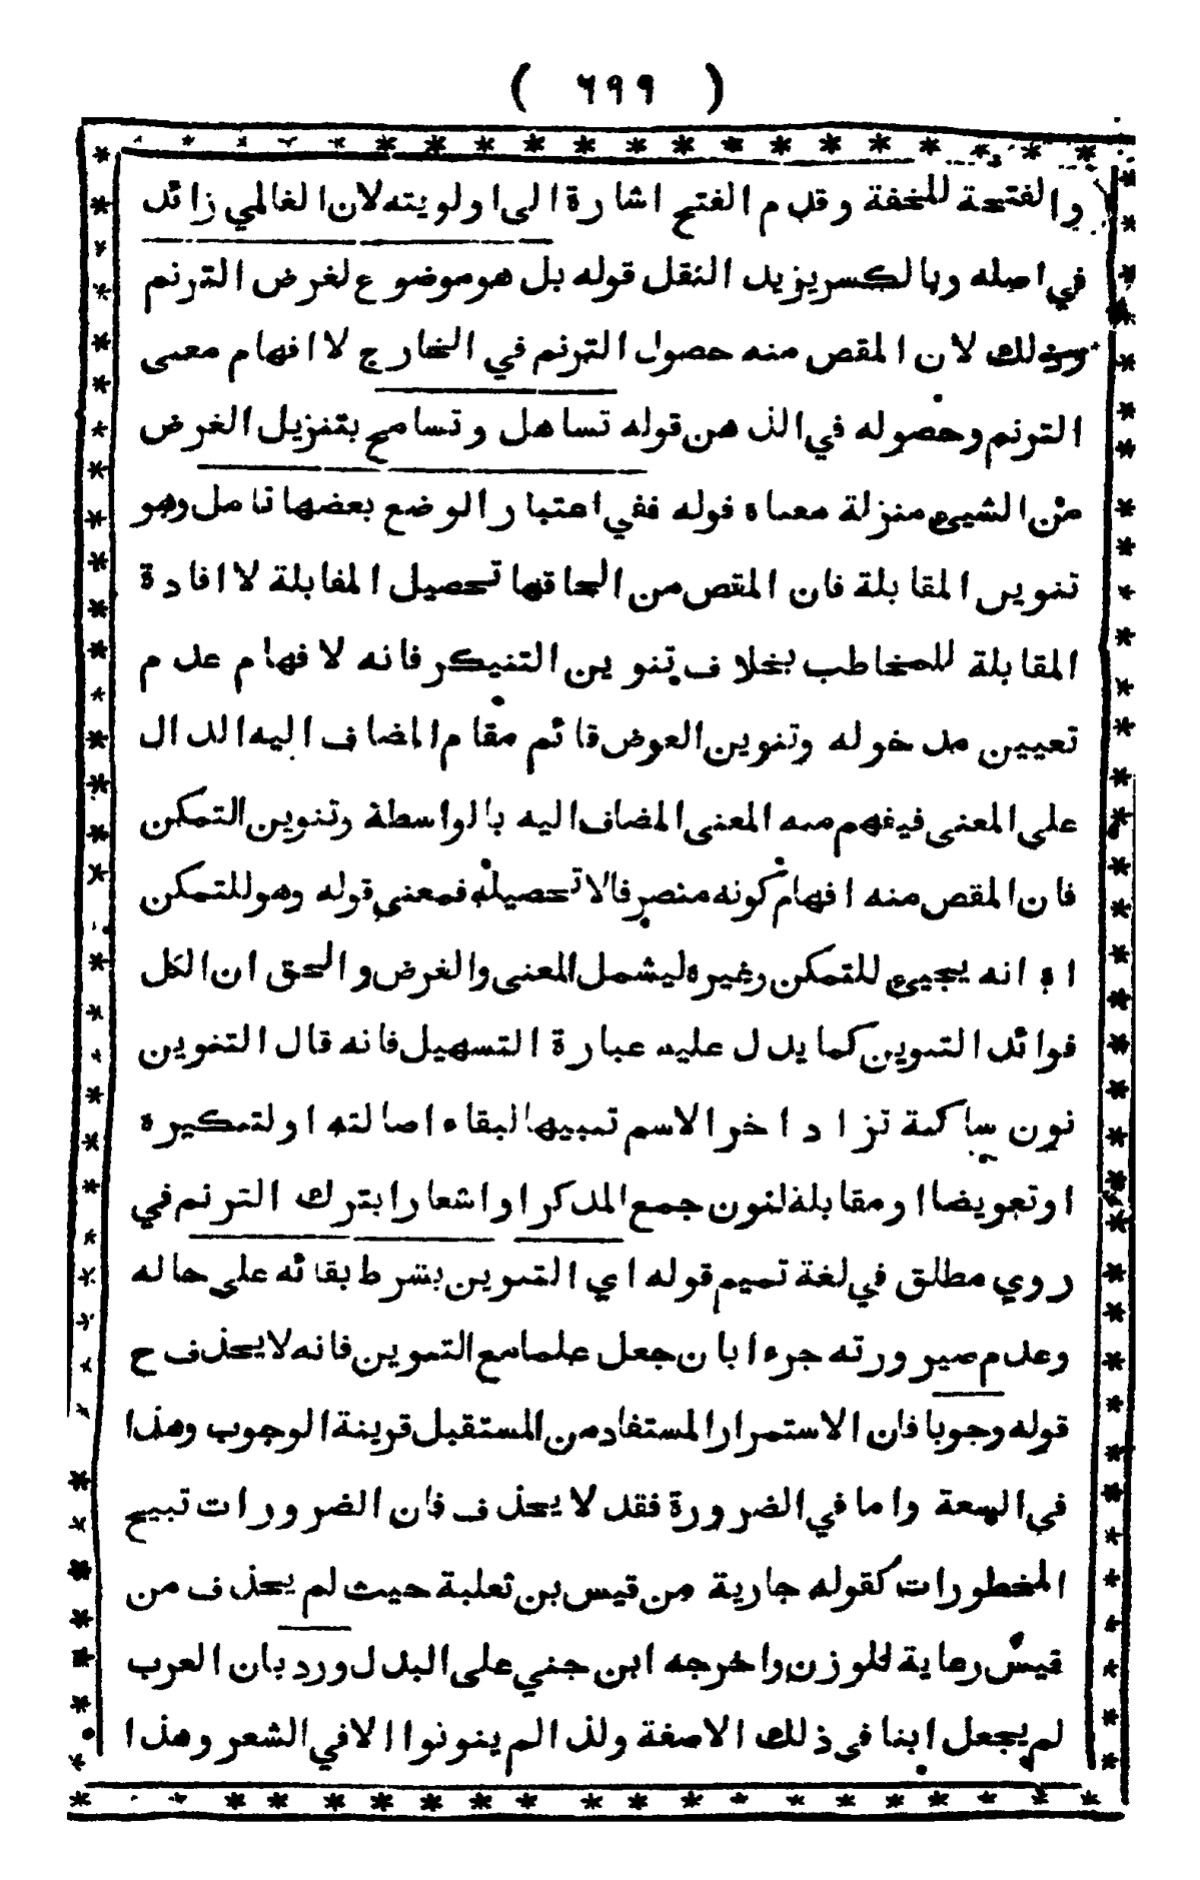 ( ٦٩٩ )
والفتحة للخفة وقدم الفتح اشارة الى اولويته لان الغالي زائد
في اصله وبالكسر يزيد النقل قوله بل هو موضوع لغرض الترنم
وذلك لان المقص منه حصول الترنم في الخارج لا افهام معنى
الترنم وحصوله في الذهن قوله تساهل وتسامح بتنزيل الغرض
من الشيئ منزلة معناه قوله ففي اعتبار الوضع بعضها تامل وهو
تنوين المقابلة فان المقص من الحاقها تحصيل المقابلة لا افادة
المقابلة للمخاطب بخلاف تنوين التنيكر فانه لافهام عدم
تعيين مدخوله وتنوين العوض قائم مقام المضاف اليه الدال
على المعنى فيفهم منه المعنى المضاف اليه بالواسطة وتنوين التمكن
فان المقص منه افهام كونه منصرفا لا تحصيله فمعنى قوله وهو للتمكن
اه انه يجيئ للتمكن وغيره ليشمل المعنى والغرض والحق ان الكل
فوائد التنوين كما يدل عليه عبارة التسهيل فانه قال التنوين
نون ساكنة تزاد اخر الاسم تنبيها لبقاء اصالته اولتنكيره
اوتعويضا اومقابلة لنون جمع المذكر اواشعارا بترك الترنم في
روي مطلق في لغة تميم قوله اي التنوين بشرط بقائه على حاله
وعدم صيرورته جزءا بان جعل علما مع التنوين فانه لا يحذف ح
قوله وجوبا فان الاستمرار المستفاد من المستقبل قرينة الوجوب وهذا
في السعة واما في الضرورة فقد لا يحذف فان الضرورات تبيح
المحظورات كقوله جارية من قيس بن ثعلبة حيث لم يحذف من
قيس رعاية للوزن واخرجه ابن جني على البدل ورد بان العرب
لم يجعل ابنا في ذلك الاصفة ولذا لم ينونوا الا في الشعر وهذا